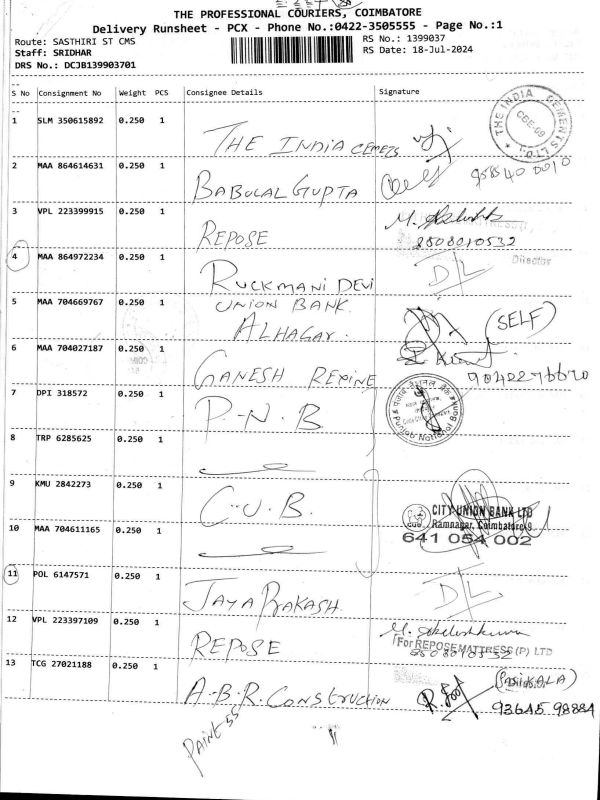 THE PROFESSIONAL COURIERS, COIMBATORE
Delivery Runsheet - PCX - Phone No.:0422-3505555 - Page No.:1
Route: SASTHIRI ST CMS
RS No.: 1399037
Staff: SRIDHAR
RS Date: 18-Jul-2024
DRS No.: DCJB139903701
S No Consignment No Weight PCS Consignee Details Signature
1 SLM 350615892 0.250 1 THE INDIA CEMETS
THE INDIA CEMENTS LTD. CBE-69
2 MAA 864614631 0.250 1 BABULAL GUPTA
3 VPL 223399915 0.250 1 REPOSE
Director
4 MAA 864972234 0.250 1 RUCKMANI DEVI D/L
5 MAA 704669767 0.250 1 UNION BANK
ALHAGAR. (SELF)
6 MAA 704027187 0.250 1 GANESH REPINE
7 DPI 318572 0.250 1 P-N.B
Punjab National Bank
8 TRP 6285625 0.250 1
9 KMU 2842273 0.250 1 C.U.B.
CITY UNION BANK LTD
Ramnagar, Coimbatore-9
641 054 002
10 MAA 704611165 0.250 1
11 POL 6147571 0.250 1 JAYA PRAKASH. D/L
12 VPL 223397109 0.250 1 REPOSE
For REPOSE MATTRESS (P) LTD
13 TCG 27021188 0.250 1 A.B.R. CONSTRUCTION
(SASIKALA)
93645 98884
PAINT 55